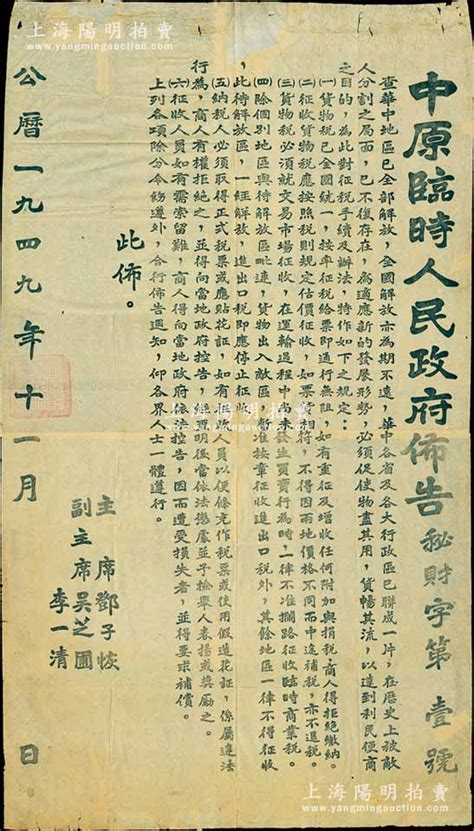 上海陽明拍賣
www.yangmingauction.com
中原臨時人民政府佈告 秘財字第壹號
查華中地區已全部解放,全國解放亦為期不遠,華中各省及各大行政區已聯成一片,在歷史上被敵
人分割之局面,已不復存在,為適應新的發展形勢,必須促使物盡其用,貨暢其流,以達到利民便商
之目的,為此對征稅手續及辦法,特作如下之規定:
㈠貨物稅已全國統一,按率征稅給票即通行無阻,如有重征及增收任何附加與捐稅,商人得拒絕繳納。
㈡征收貨物稅應按照稅則規定估價征收,如票貨相符,不得因兩地價格不同而中途補稅,亦不退稅。
㈢貨物稅必須就交易市場征收,在運輸過程中尚未發生買賣行為時,一律不准攔路征收臨時商業稅。
㈣除個別地區與待解放區毗連,貨物出入敵區准按章征收進出口稅外,其餘地區一律不得征收
,此待解放區,一經解放,進出口稅即應停止征收。
㈤納稅人必須取得正式稅票或應貼花証,如有征收人員以便條充作稅票或使用假造花証,係屬違法
行為,商人有權拒絕之,並得向當地政府控告,經查明後當依法懲處並予檢舉人表揚或獎勵之。
㈥征收人員如有需索留難,商人得向當地政府依法控告,因而遭受損失者,並得要求補償。
上列各項除分令飭遵外,合行佈告週知,仰各界人士一體遵行。
此佈。
主席鄧子恢
副主席吳芝圃
李一清
公曆一九四九年十一月 日
上海陽明拍賣
www.yangmingauction.com